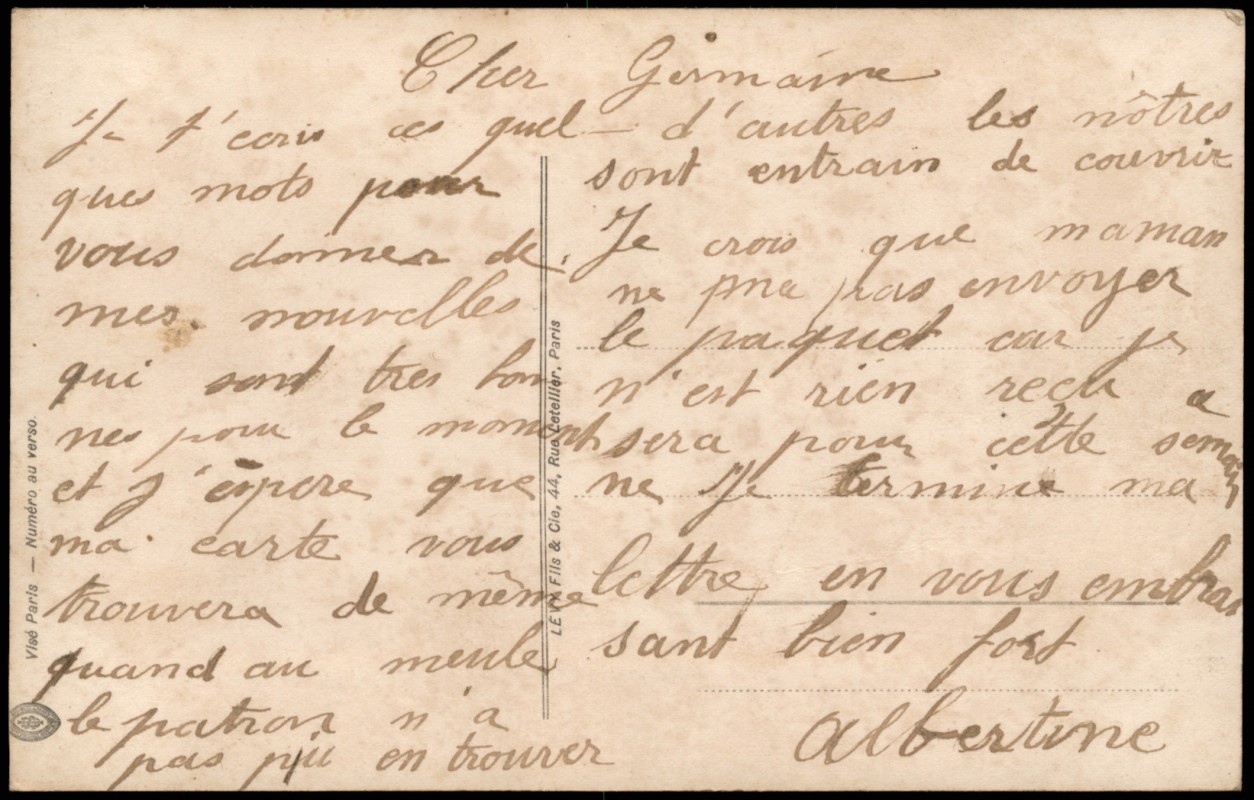 Cher Germaine
Je t'ecris ces quel-
ques mots pour
vous donner de
mes nouvelles
qui sont tres bon
nes pour le moment
et j'éspere que
ma carte vous
trouvera de même
quand au meule
le patron n'a
pas pu en trouver
d'autres les nôtres
sont entrain de couvrir
Je crois que maman
ne pas envoyer
le paquet car je
n'est rien reçu
sera pour cette semai
ne Je termine ma
lettre en vous embras
sant bien fort
Albertine
LEVY Fils & Cie, 44, Rue Letellier, Paris
Visé Paris — Numéro au verso.